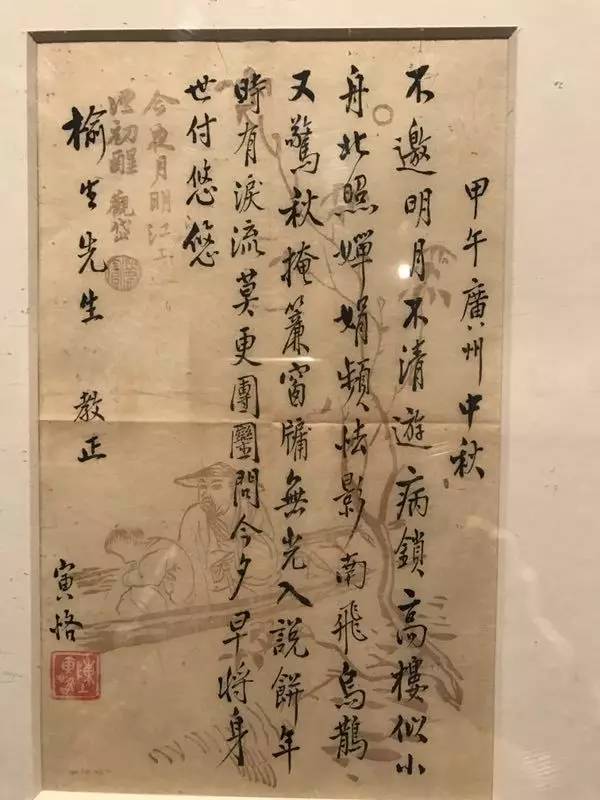 甲午廣州中秋
不邀明月不清遊病鎖高樓似小
舟北照嬋娟頻怯影南飛烏鵲
又驚秋掩簾窗牖無光入說餅年
時有淚流莫更團圞問今夕早將身
世付悠悠
榆生先生 教正
寅恪
今夜月明江上
酒初醒 觀岱